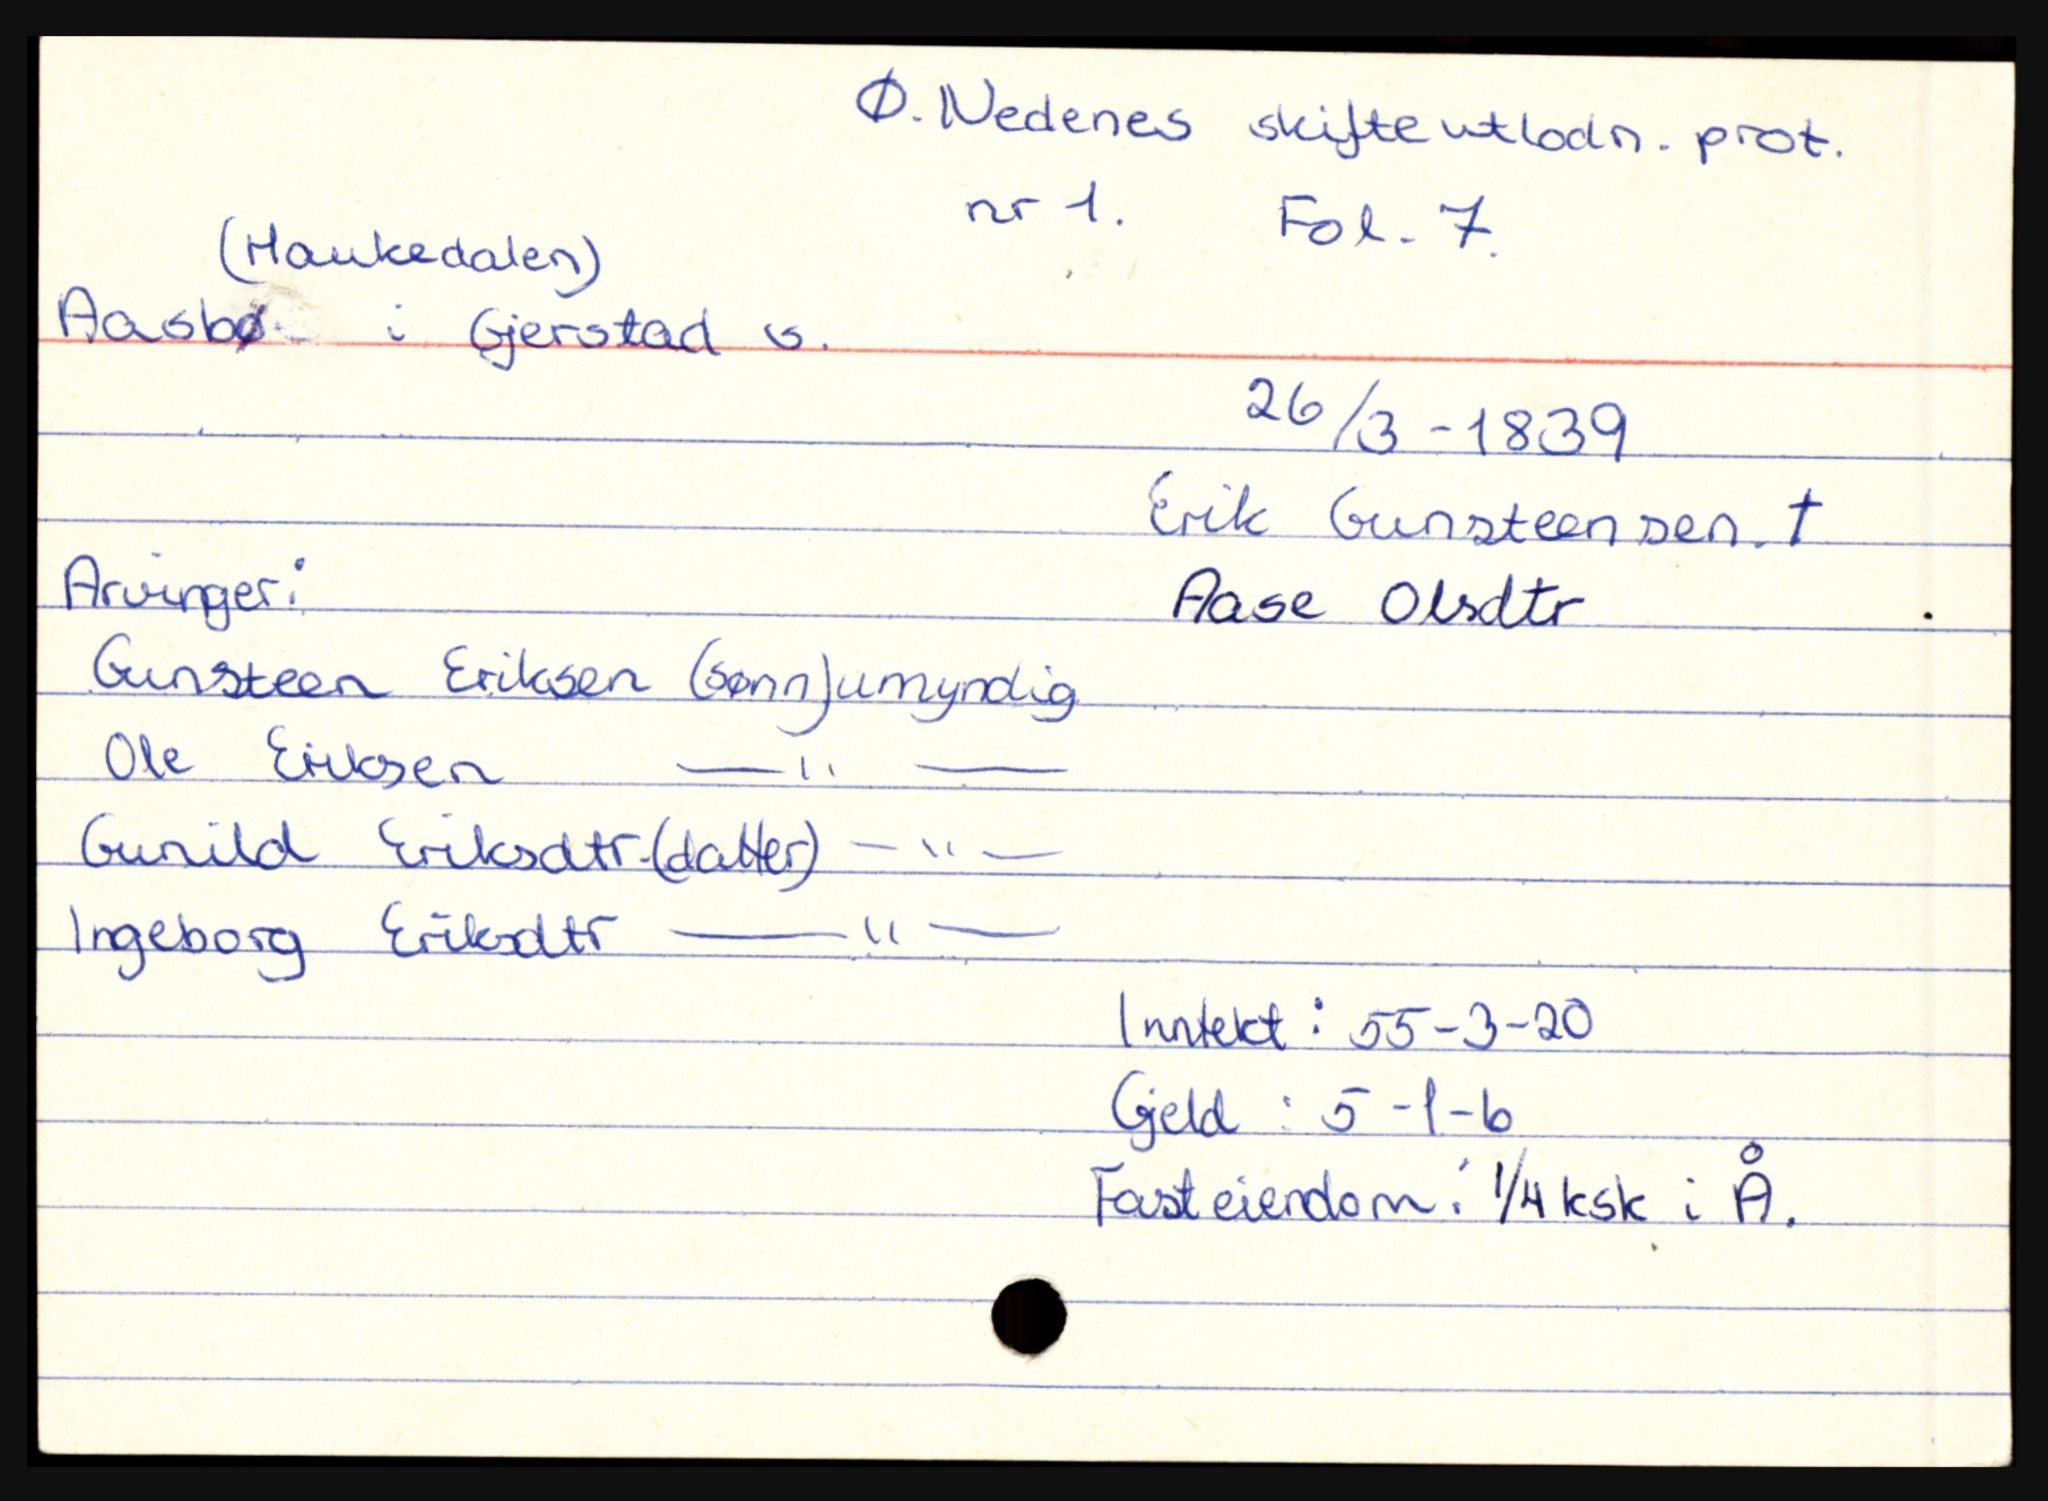 Ø. Nedenes skifteutlodn. prot.
nr 1. Fol. 7.
(Haukedalen)
Aasbø i Gjerstad s.
26/3-1839
Erik Gunsteensen. †
Arvinger:
Aase Olsdtr
Gunsteen Eriksen (sønn) umyndig
Ole Eriksen —"—
Gunild Eriksdtr. (datter) —"—
Ingeborg Eriksdtr —"—
Inntekt: 55-3-20
Gjeld: 5-1-6
Fast eiendom: 1/4 ksk i Å.